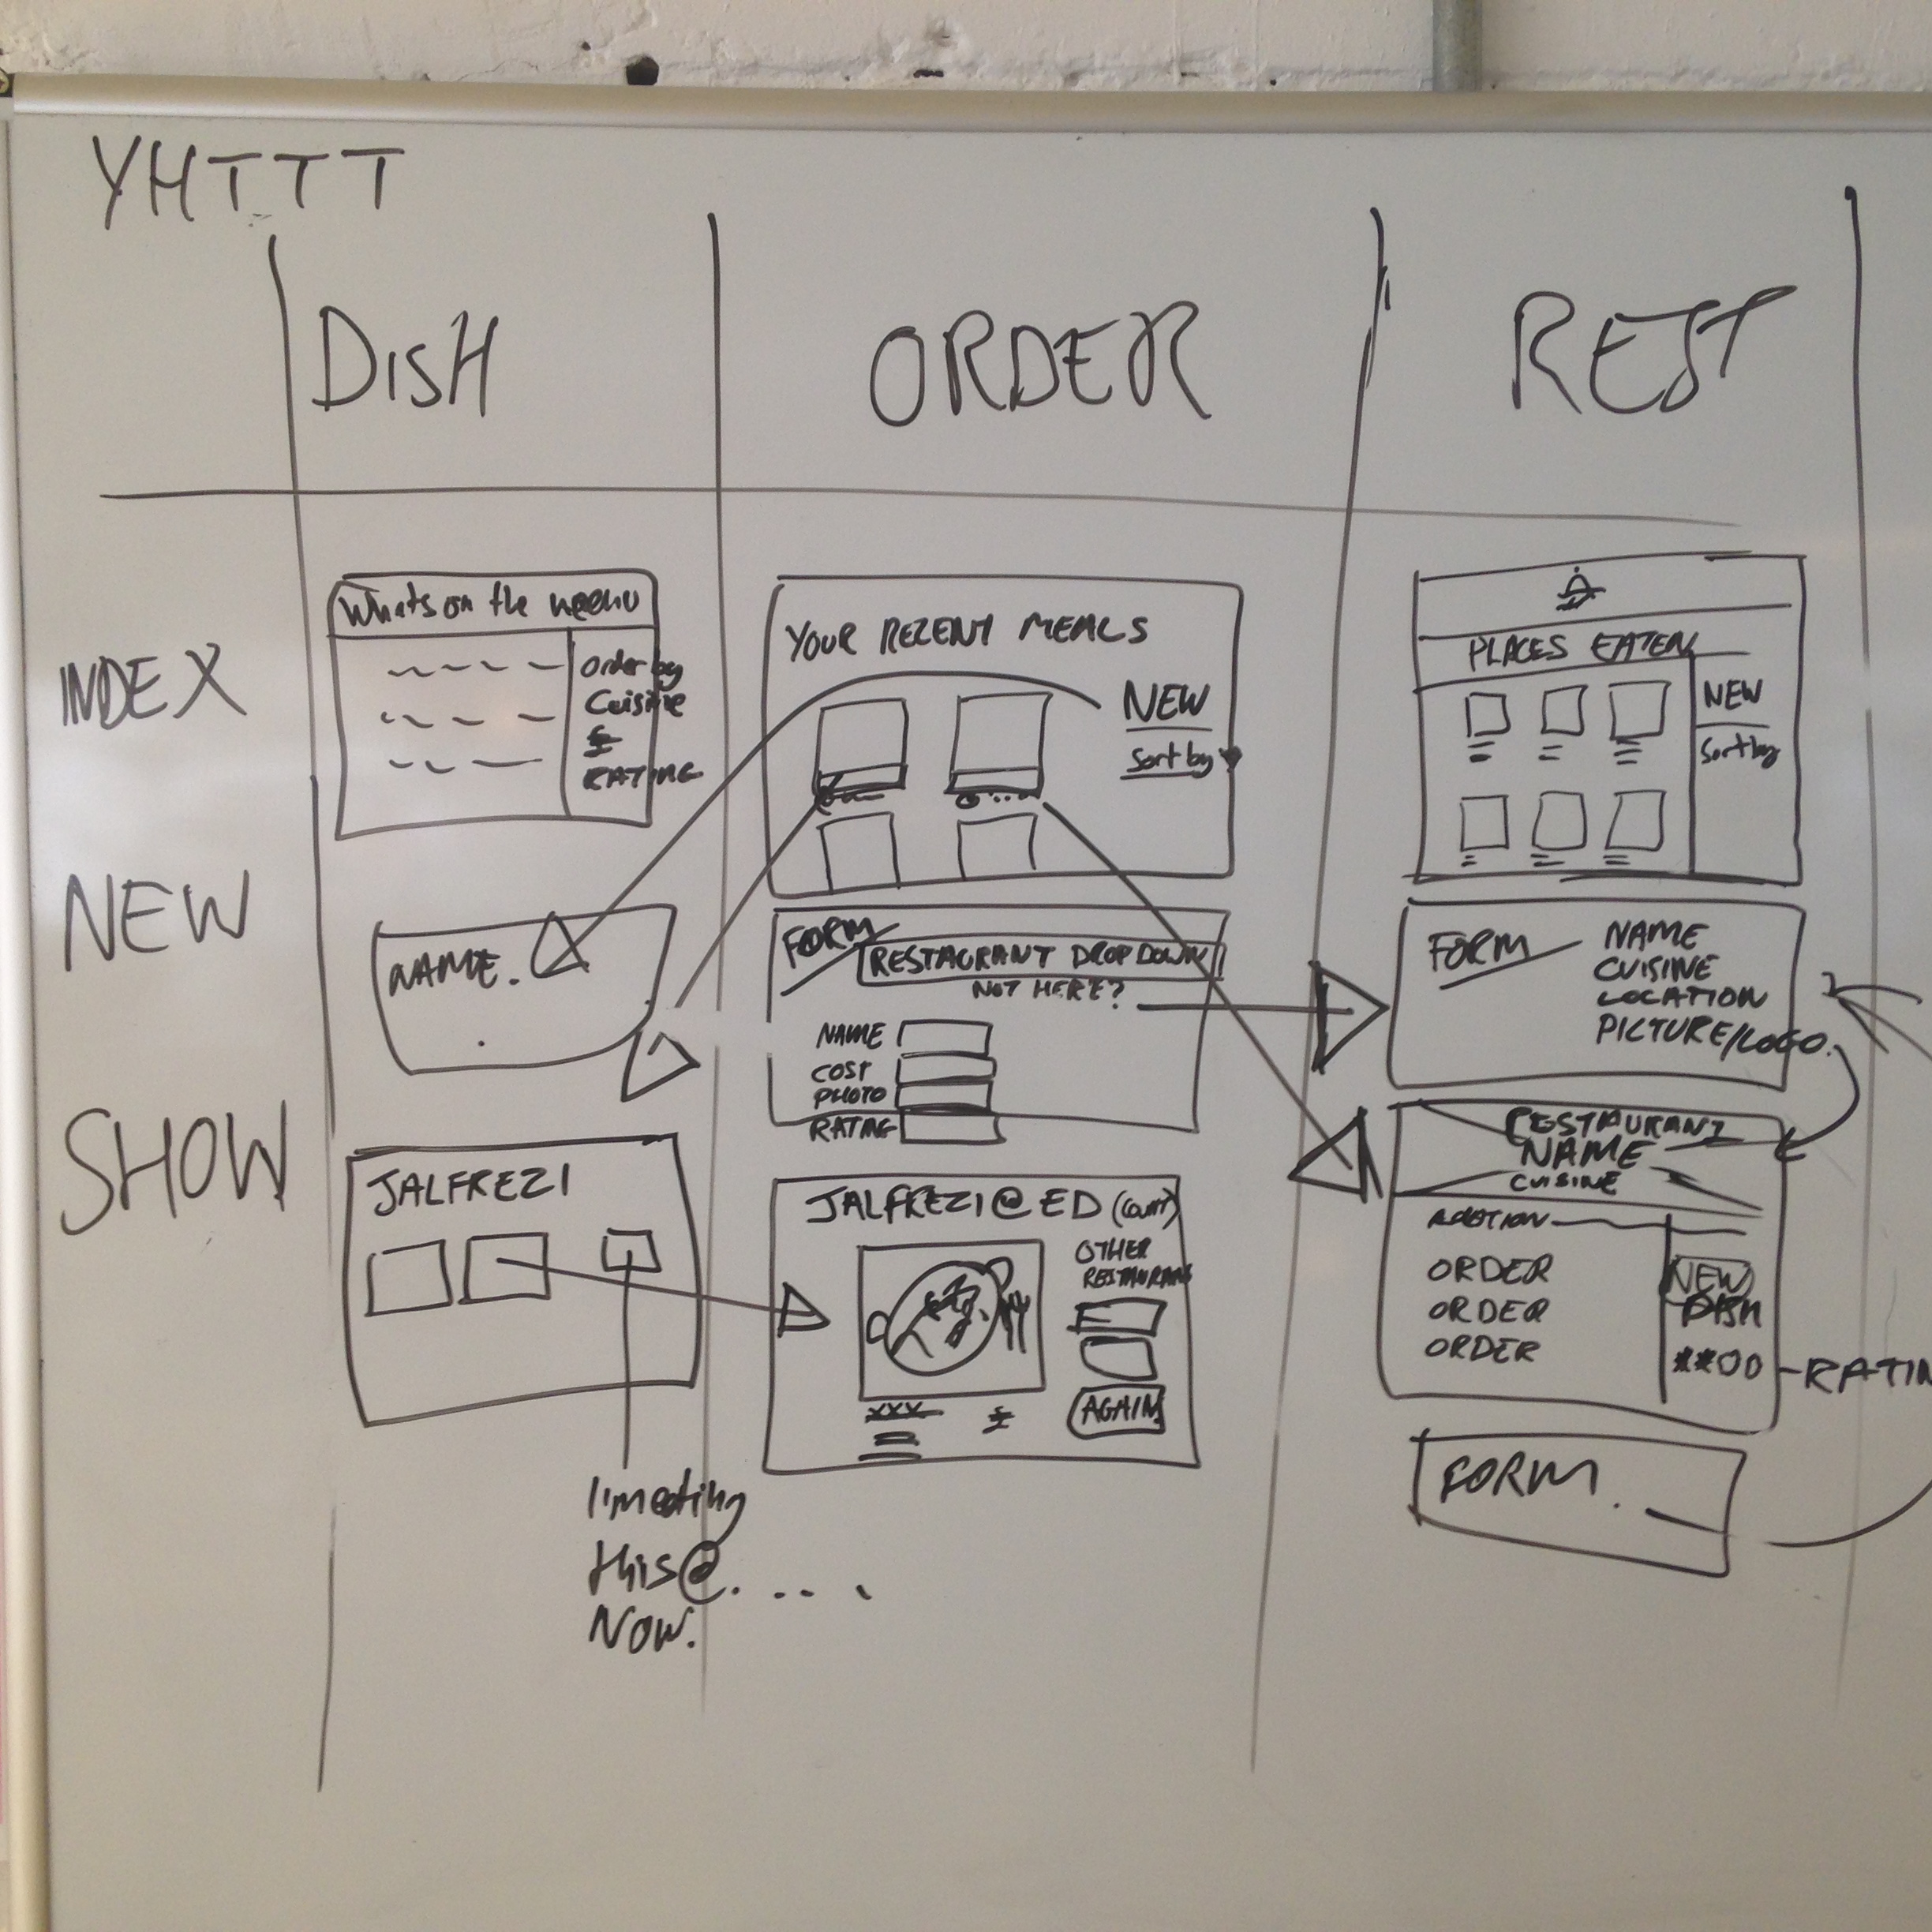 YHTTT
DISH
ORDER
REST
INDEX
Whats on the meenu
Order by
Cuisine
£
RATING
YOUR RECENT MEALS
NEW
Sort by
PLACES EATEN
NEW
Sort by
NEW
NAME.
FORM
RESTAURANT DROP DOWN
NOT HERE?
NAME
COST
PHOTO
RATING
FORM
NAME
CUISINE
LOCATION
PICTURE/LOGO.
SHOW
JALFREZI
I'm eating
this @. . . .
NOW.
JALFREZI @ ED (COURT)
OTHER
RESTAURANS
XXX
£
AGAIN
RESTAURANT
NAME
CUISINE
ORDER
ORDER
ORDER
NEW
DISH
**OO
-RATIN
FORM.